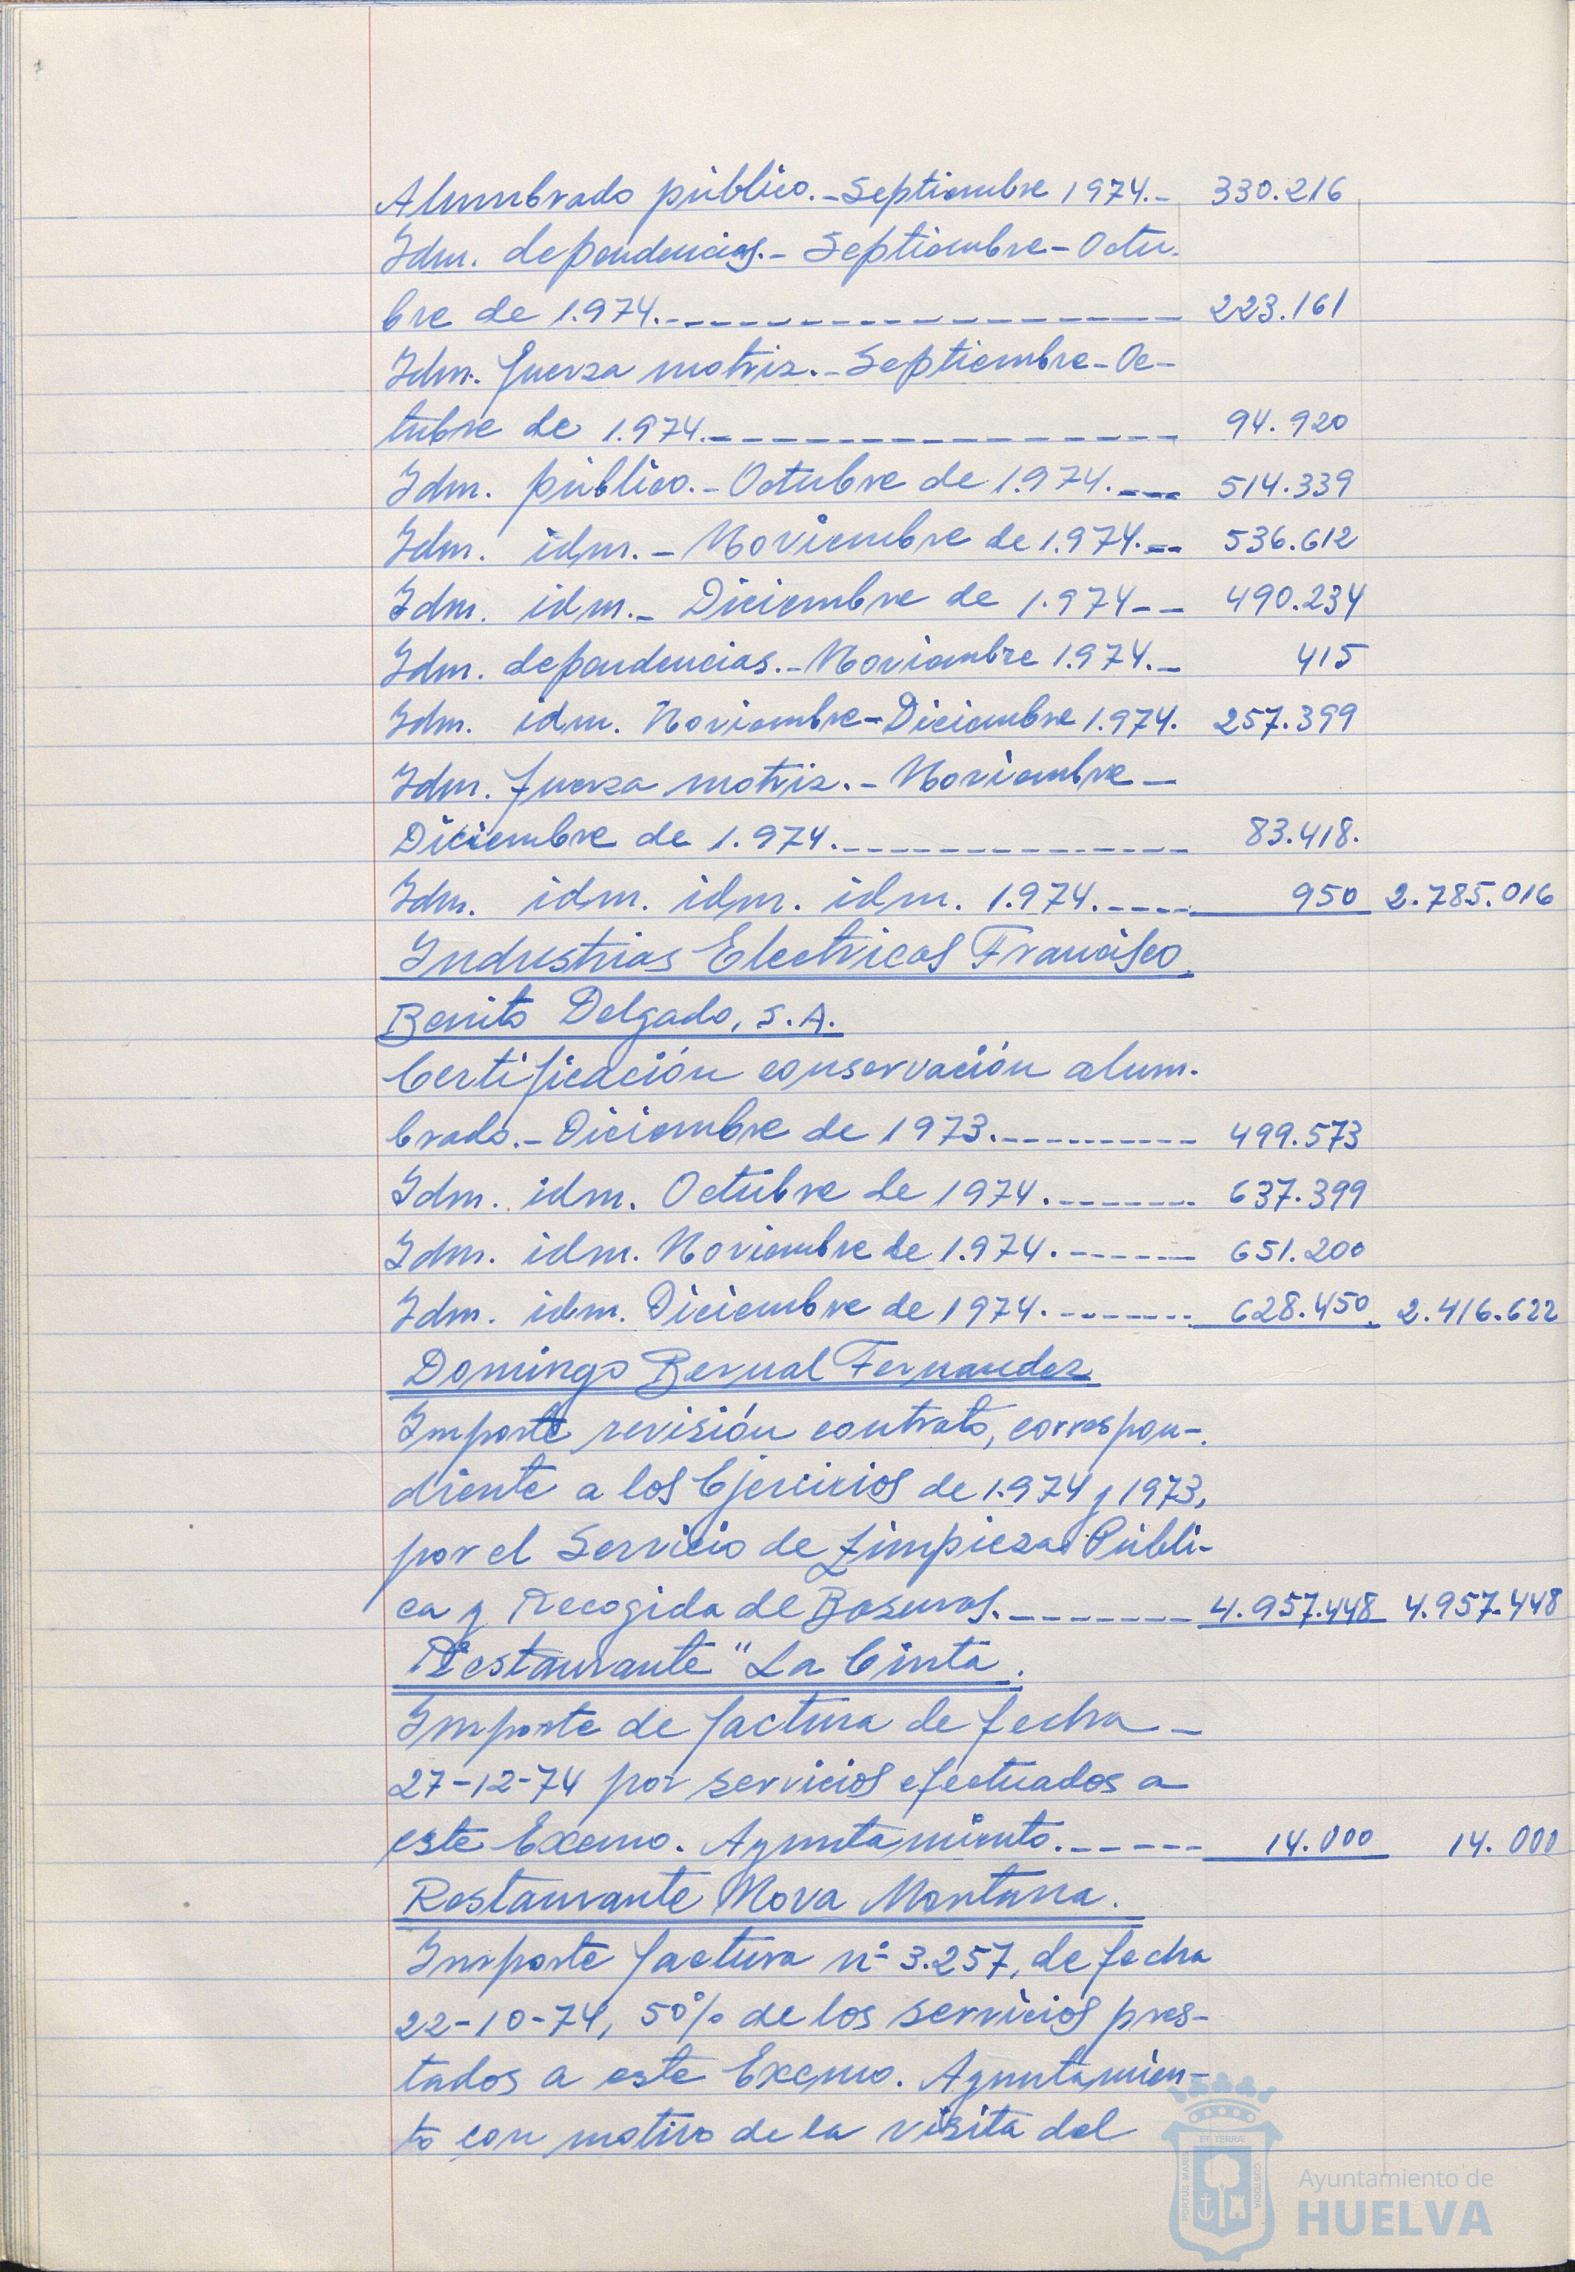 Alumbrado público.-Septiembre 1974.- 330.216
Idm. dependencias.- Septiembre-Octu-
bre de 1.974.- 223.161
Idm. fuerza motriz.-Septiembre-Oc-
tubre de 1.974.- 94.920
Idm. público.-Octubre de 1.974.- 514.339
Idm. idm.-Noviembre de 1.974.- 536.612
Idm. idm.- Diciembre de 1.974-- 490.234
Idm. dependencias.-Noviembre 1.974.- 415
Idm. idm. Noviembre-Diciembre 1.974. 257.399
Idm. fuerza motriz.-Noviembre-
Diciembre de 1.974.- 83.418.
Idm. idm. idm. idm. 1.974.- 950 2.785.016
Industrias Electricas Francisco
Benito Delgado, S.A.
Certificación conservación alum-
brado.-Diciembre de 1973.- 499.573
Idm. idm. Octubre de 1974.- 637.399
Idm. idm. Noviembre de 1.974.- 651.200
Idm. idm. Diciembre de 1974.- 628.450. 2.416.622
Domingo Bernal Fernandez
Importe revisión contrato, correspon-
diente a los Ejercicios de 1.974 y 1973,
por el Servicio de Limpieza Públi-
ca y Recogida de Basuras.- 4.957.448 4.957.448
Restaurante "La Cinta.
Importe de factura de fecha-
27-12-74 por servicios efectuados a
este Excmo. Ayuntamiento.- 14.000 14.000
Restaurante Nova Montana.
Importe factura nº 3.257, de fecha
22-10-74, 50% de los servicios pres-
tados a este Excmo. Ayuntamien-
to con motivo de la visita del
ET TERRÆ
PORTUS MARIS
CUSTODIA
Ayuntamiento de
HUELVA